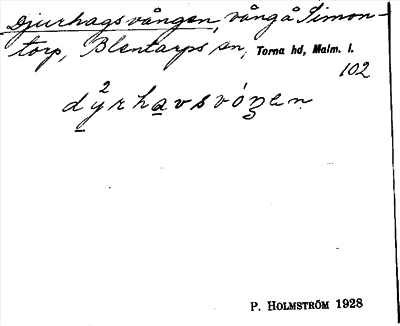 Djurhagsvången, vång å Simon-
torp, Blentarps sn, Torna hd, Malm. l.
102
dy²rhavsvóŋen
P. HOLMSTRÖM 1928